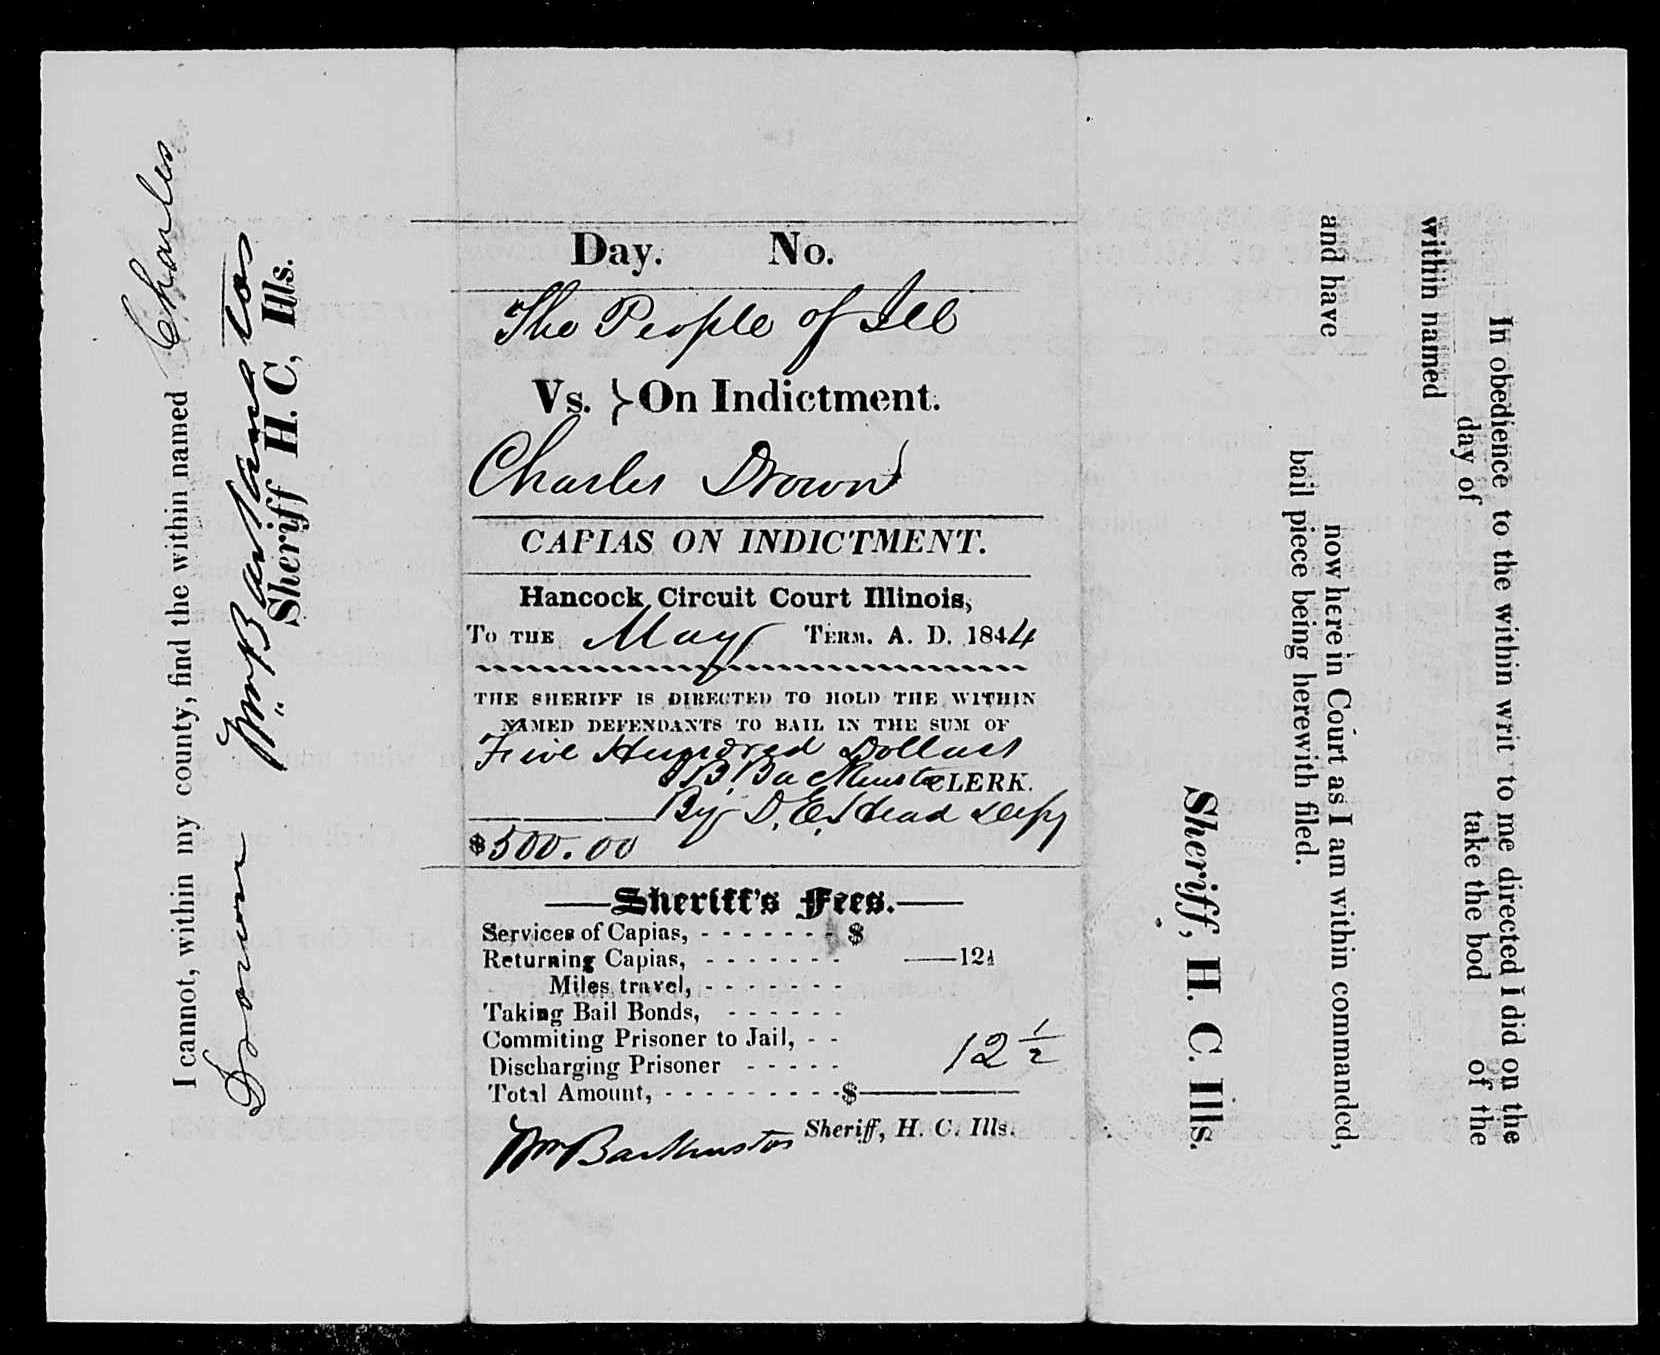 I cannot, within my county, find the within named Charles
Drown
Wm Backenstos
Sheriff H. C, Ills.
Day. No.
The People of Ill
Vs. } On Indictment.
Charles Drown
CAPIAS ON INDICTMENT.
Hancock Circuit Court Illinois,
To the May Term. A. D. 1844
THE SHERIFF IS DIRECTED TO HOLD THE WITHIN
NAMED DEFENDANTS TO BAIL IN THE SUM OF
Five Hundred Dollars
J B Backenstos CLERK.
By D. E. Head Depy
$500.00
Sheriff's Fees.
Services of Capias, - - - - - - - $
Returning Capias, - - - - - - - 12½
Miles travel, - - - - - - -
Taking Bail Bonds, - - - - - -
Commiting Prisoner to Jail, - -
Discharging Prisoner - - - - - 12 ½
Total Amount, - - - - - - - - - $
Wm Backenstos Sheriff, H. C. Ills.
In obedience to the within writ to me directed I did on the
day of take the bod of the
within named
and have now here in Court as I am within commanded,
bail piece being herewith filed.
Sheriff, H. C. Ills.